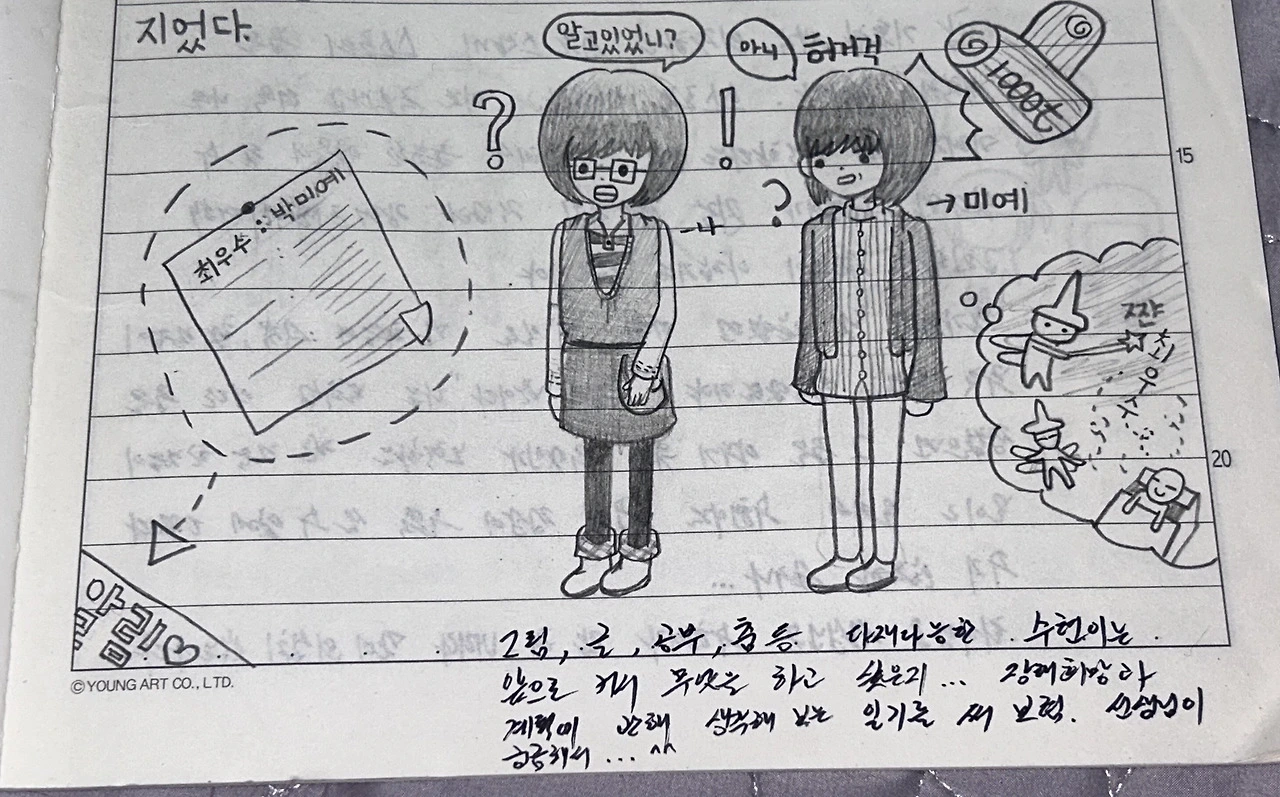 지었다.
알고있었니?
아니
허거걱
1000t
최우수 : 박미예
-나
→미예
쨘
최우수
15
20
알림♡
©YOUNG ART CO., LTD.
그림, 글, 공부, 춤 등 다재다능한 수현이는
앞으로 커서 무엇을 하고 싶은지... 장래희망과
계획에 대해 생각해 보는 일기를 써 보렴. 선생님이
궁금해서... ^^